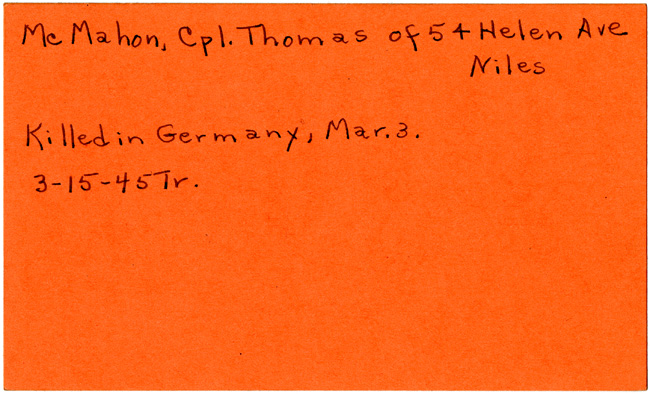 Mc Mahon, Cpl. Thomas of 54 Helen Ave
Niles
Killed in Germany, Mar. 3.
3-15-45 Tr.